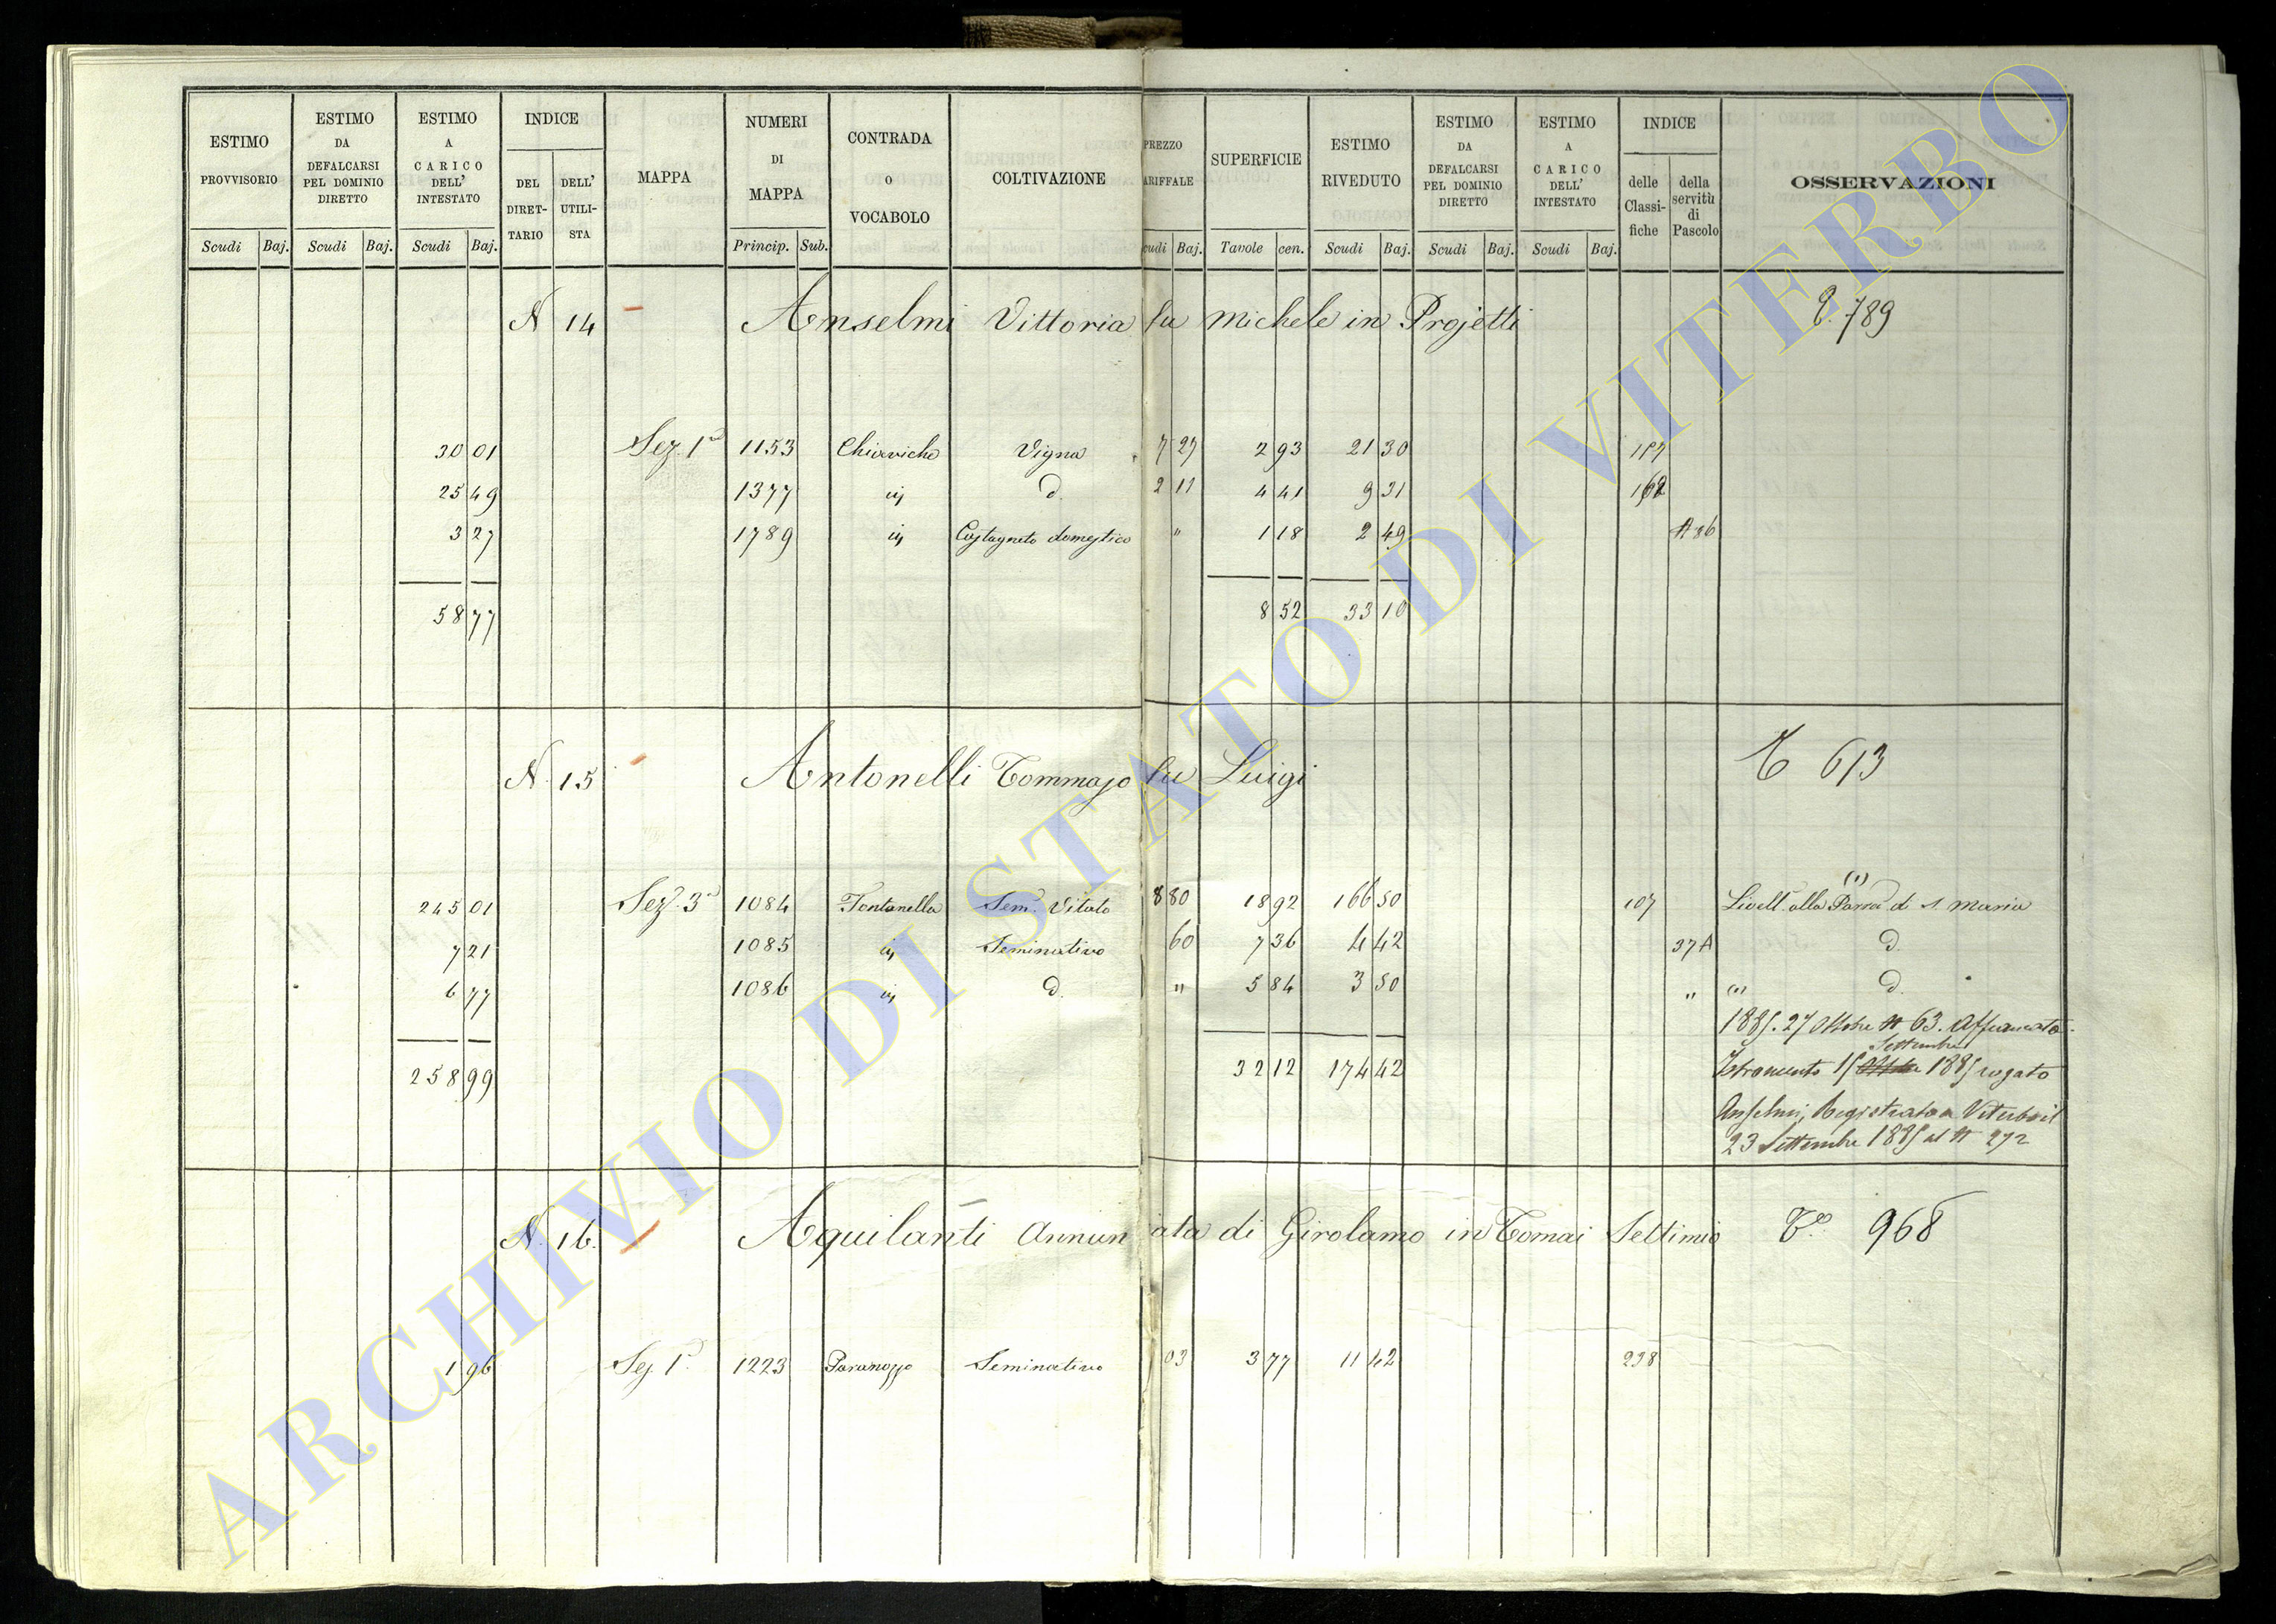 ESTIMO PROVVISORIO
ESTIMO DA DEFALCARSI PEL DOMINIO DIRETTO
ESTIMO A CARICO DELL' INTESTATO
INDICE
DEL DIRETTARIO
DELL' UTILISTA
MAPPA
NUMERI DI MAPPA
CONTRADA O VOCABOLO
COLTIVAZIONE
PREZZO
ARIFFALE
SUPERFICIE
ESTIMO RIVEDUTO
ESTIMO DA DEFALCARSI PEL DOMINIO DIRETTO
ESTIMO A CARICO DELL' INTESTATO
INDICE
delle Classifiche
della servitù di Pascolo
OSSERVAZIONI
Scudi Baj. Scudi Baj. Scudi Baj. Princip. Sub. cudi Baj. Tavole cen. Scudi Baj. Scudi Baj. Scudi Baj.
N 14 Anselmi Vittoria fu Michele in Projetti 789
30 01 Sez. 1ª 1153 Chiaviche Vigna 7 27 2 93 21 30
25 49 1377 ivi d. 2 11 4 41 9 31 162
3 27 1789 ivi Castagneto domestico " 1 18 2 49 A 86
58 77 8 52 33 10
N. 15 Antonelli Tommaso fu Luigi 613
245 01 Sez. 3ª 1084 Fontanella Sem. Vitato 8 80 18 92 166 50 107 (1) Livell. alla Parra di S. Maria
7 21 1085 ivi Seminativo 60 7 36 4 42 37 A d.
6 77 1086 ivi d. " 5 84 3 50 " d.
(1)
1885. 27 Ottobre N 63. Affrancato.
Settembre
Istromento 15 1885 rogato
Anselmi, Registrato a Viterbo il
23 Settembre 1885 al N 272
258 99 32 12 174 42
N. 16. Aquilanti Annunziata di Girolamo in Tomai Settimio 968
1 96 Sez. 1ª 1223 Paranozzo Seminativo 03 3 77 11 42 238
ARCHIVIO DI STATO DI VITERBO